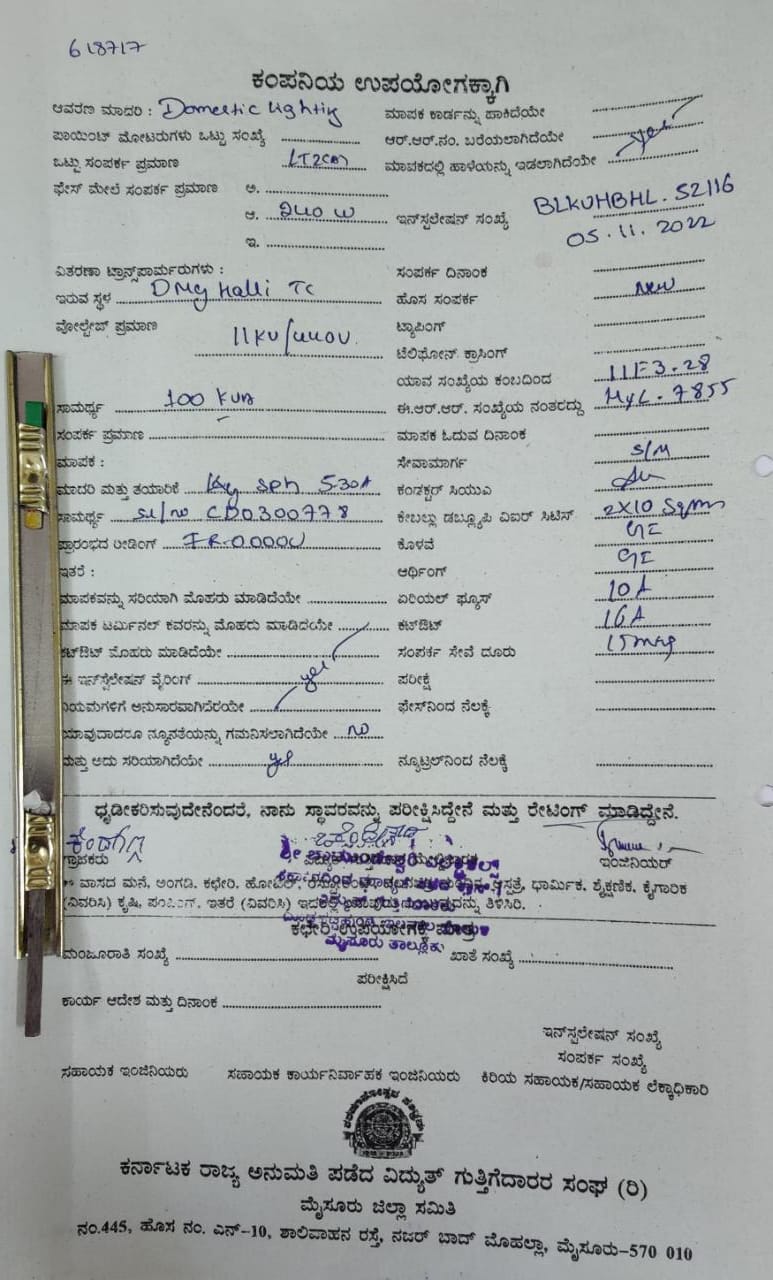 618717
ಕಂಪನಿಯ ಉಪಯೋಗಕ್ಕಾಗಿ
ಆವರಣ ಮಾದರಿ : Domestic Lighting ಮಾಪಕ ಕಾರ್ಡನ್ನು ಹಾಕಿದೆಯೇ
ಪಾಯಿಂಟ್ ಮೋಟರುಗಳು ಒಟ್ಟು ಸಂಖ್ಯೆ ಆರ್.ಆರ್.ನಂ. ಬರೆಯಲಾಗಿದೆಯೇ yes
ಒಟ್ಟು ಸಂಪರ್ಕ ಪ್ರಮಾಣ LT2(a) ಮಾಪಕದಲ್ಲಿ ಹಾಳೆಯನ್ನು ಇಡಲಾಗಿದೆಯೇ
ಫೇಸ್ ಮೇಲೆ ಸಂಪರ್ಕ ಪ್ರಮಾಣ ಅ.
ಆ. 240 W ಇನ್‌ಸ್ಟಲೇಷನ್ ಸಂಖ್ಯೆ BLKUHBHL. 52116
ಇ. 05.11.2022
ವಿತರಣಾ ಟ್ರಾನ್ಸ್‌ಪಾರ್ಮರುಗಳು : ಸಂಪರ್ಕ ದಿನಾಂಕ
ಇರುವ ಸ್ಥಳ DMG Halli TC ಹೊಸ ಸಂಪರ್ಕ New
ವೋಲ್ಟೇಜ್ ಪ್ರಮಾಣ 11KV/440V. ಟ್ಯಾಪಿಂಗ್
ಟೆಲಿಫೋನ್ ಕ್ರಾಸಿಂಗ್
ಯಾವ ಸಂಖ್ಯೆಯ ಕಂಬದಿಂದ 11F3.28
ಸಾಮರ್ಥ್ಯ 100 KVA ಈ.ಆರ್.ಆರ್. ಸಂಖ್ಯೆಯ ನಂತರದ್ದು MYL. 7855
ಸಂಪರ್ಕ ಪ್ರಮಾಣ ಮಾಪಕ ಓದುವ ದಿನಾಂಕ
ಮಾಪಕ : ಸೇವಾಮಾರ್ಗ S/M
ಮಾದರಿ ಮತ್ತು ತಯಾರಿಕೆ L&G SPH 5-30A ಕಂಡಕ್ಟರ್ ಸಿಯುಎ
ಸಾಮರ್ಥ್ಯ Sl/no CD0300778 ಕೇಬಲ್ಲು ಡಬ್ಲ್ಯೂಪಿ ವಿಐರ್ ಸಿಟಿಸ್ 2X10 Sqmm
ಪ್ರಾರಂಭದ ರೀಡಿಂಗ್ IR-0.000U ಕೊಳವೆ GI
ಇತರೆ : ಆರ್ಥಿಂಗ್ GI
ಮಾಪಕವನ್ನು ಸರಿಯಾಗಿ ಮೊಹರು ಮಾಡಿದೆಯೇ ಏರಿಯಲ್ ಫ್ಯೂಸ್ 10A
ಮಾಪಕ ಟರ್ಮಿನಲ್ ಕವರನ್ನು ಮೊಹರು ಮಾಡಿದೆಯೇ ಕಟ್‌ಔಟ್ 16A
ಕಟ್‌ಔಟ್ ಮೊಹರು ಮಾಡಿದೆಯೇ ಸಂಪರ್ಕ ಸೇವೆ ದೂರು 15mtr
ಈ ಇನ್‌ಸ್ಟಲೇಷನ್ ವೈರಿಂಗ್ yes ಪರೀಕ್ಷೆ
ನಿಯಮಗಳಿಗೆ ಅನುಸಾರವಾಗಿದೆಯೇ ಫೇಸ್‌ನಿಂದ ನೆಲಕ್ಕೆ
ಯಾವುದಾದರೂ ನ್ಯೂನತೆಯನ್ನು ಗಮನಿಸಲಾಗಿದೆಯೇ no
ಮತ್ತು ಅದು ಸರಿಯಾಗಿದೆಯೇ yes ನ್ಯೂಟ್ರಲ್‌ನಿಂದ ನೆಲಕ್ಕೆ
ಧೃಡೀಕರಿಸುವುದೇನೆಂದರೆ, ನಾನು ಸ್ಥಾವರವನ್ನು ಪರೀಕ್ಷಿಸಿದ್ದೇನೆ ಮತ್ತು ರೇಟಿಂಗ್ ಮಾಡಿದ್ದೇನೆ.
ಗ್ರಾಹಕರು ಇಂಜಿನಿಯರ್
ಶ್ರೀ ಚಾಮುಂಡೇಶ್ವರಿ
** ವಾಸದ ಮನೆ, ಅಂಗಡಿ, ಕಛೇರಿ, ಹೋಟೆಲ್, ಆಸ್ಪತ್ರೆ, ಧಾರ್ಮಿಕ, ಶೈಕ್ಷಣಿಕ, ಕೈಗಾರಿಕ
(ನಿವರಿಸಿ) ಕೃಷಿ, ಪಂಪಿಂಗ್, ಇತರೆ (ನಿವರಿಸಿ) ತಿಳಿಸಿರಿ.
ಕಛೇರಿ ಉಪಯೋಗಕ್ಕೆ ಮಾತ್ರ
ಮೈಸೂರು ತಾಲ್ಲೂಕು
ಮಂಜೂರಾತಿ ಸಂಖ್ಯೆ ಖಾತೆ ಸಂಖ್ಯೆ
ಪರೀಕ್ಷಿಸಿದೆ
ಕಾರ್ಯ ಆದೇಶ ಮತ್ತು ದಿನಾಂಕ
ಇನ್‌ಸ್ಟಲೇಷನ್ ಸಂಖ್ಯೆ
ಸಂಪರ್ಕ ಸಂಖ್ಯೆ
ಸಹಾಯಕ ಇಂಜಿನಿಯರು ಸಹಾಯಕ ಕಾರ್ಯನಿರ್ವಾಹಕ ಇಂಜಿನಿಯರು ಕಿರಿಯ ಸಹಾಯಕ/ಸಹಾಯಕ ಲೆಕ್ಕಾಧಿಕಾರಿ
ಕರ್ನಾಟಕ ರಾಜ್ಯ ಅನುಮತಿ ಪಡೆದ ವಿದ್ಯುತ್ ಗುತ್ತಿಗೆದಾರರ ಸಂಘ (ರಿ)
ಮೈಸೂರು ಜಿಲ್ಲಾ ಸಮಿತಿ
ನಂ.445, ಹೊಸ ನಂ. ಎನ್-10, ಶಾಲಿವಾಹನ ರಸ್ತೆ, ನಜರ್ ಬಾದ್ ಮೊಹಲ್ಲಾ, ಮೈಸೂರು-570 010